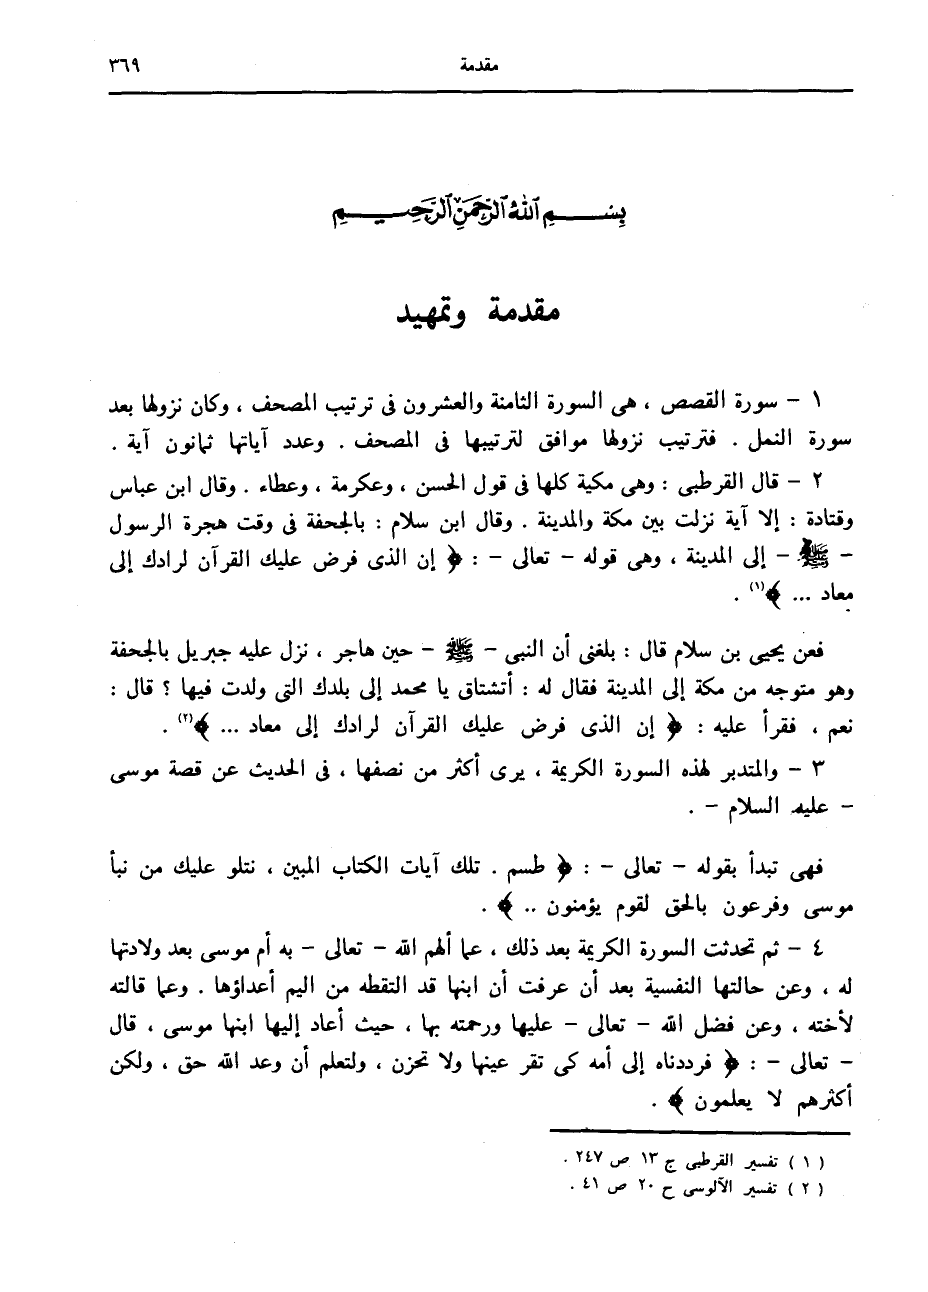 مقدمة ٣٦٩
بسم الله الرحمن الرحيم
مقدمة وتمهيد
١ - سورة القصص ، هى السورة الثامنة والعشرون فى ترتيب المصحف ، وكان نزولها بعد
سورة النمل . فترتيب نزولها موافق لترتيبها فى المصحف . وعدد آياتها ثمانون آية .
٢ - قال القرطبى : وهى مكية كلها فى قول الحسن ، وعكرمة ، وعطاء . وقال ابن عباس
وقتادة : إلا آية نزلت بين مكة والمدينة . وقال ابن سلام : بالجحفة فى وقت هجرة الرسول
- ﷺ - إلى المدينة ، وهى قوله - تعالى - : ﴿ إن الذى فرض عليك القرآن لرادك إلى
معاد ... ﴾(١) .
فعن يحيى بن سلام قال : بلغنى أن النبى - ﷺ - حين هاجر ، نزل عليه جبريل بالجحفة
وهو متوجه من مكة إلى المدينة فقال له : أتشتاق يا محمد إلى بلدك التى ولدت فيها ؟ قال :
نعم ، فقرأ عليه : ﴿ إن الذى فرض عليك القرآن لرادك إلى معاد ... ﴾(٢) .
٣ - والمتدبر لهذه السورة الكريمة ، يرى أكثر من نصفها ، فى الحديث عن قصة موسى
- عليه السلام - .
فهى تبدأ بقوله - تعالى - : ﴿ طسم . تلك آيات الكتاب المبين ، نتلو عليك من نبأ
موسى وفرعون بالحق لقوم يؤمنون .. ﴾ .
٤ - ثم تحدثت السورة الكريمة بعد ذلك ، عما ألهم الله - تعالى - به أم موسى بعد ولادتها
له ، وعن حالتها النفسية بعد أن عرفت أن ابنها قد التقطه من اليم أعداؤها . وعما قالته
لأخته ، وعن فضل الله - تعالى - عليها ورحمته بها ، حيث أعاد إليها ابنها موسى ، قال
- تعالى - : ﴿ فرددناه إلى أمه كى تقر عينها ولا تحزن ، ولتعلم أن وعد الله حق ، ولكن
أكثرهم لا يعلمون ﴾ .
( ١ ) تفسير القرطبى ج ١٣ ص ٢٤٧ .
( ٢ ) تفسير الآلوسى ح ٢٠ ص ٤١ .